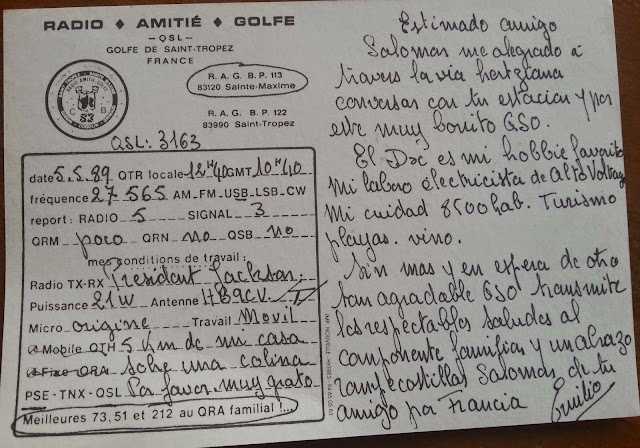 RADIO ▲ AMITIÉ ▲ GOLFE
— QSL —
GOLFE DE SAINT-TROPEZ
FRANCE
R. A. G. B. P. 113
83120 Sainte-Maxime
R. A. G. B. P. 122
83990 Saint-Tropez
83
QSL: 3163
date 5.5.89 QTR locale 12H40 GMT 10H40
fréquence 27 565 AM-FM-USB-LSB-CW
report: RADIO 5 SIGNAL 3
QRM poco QRN no QSB no
mes conditions de travail:
Radio TX-RX President Jackson
Puissance 21W Antenne HB9CV
Micro origine Travail Movil
Mobile QTH 5 Km de mi casa
Fixe QRA sobre una colina
PSE-TNX-QSL Por favor muy grato
Meilleures 73, 51 et 212 au QRA familial !...
Estimado amigo
Salomas me alegrado a
traves la via hertziana
conversar con tu estacion y por
este muy bonito QSO.
El Dx es mi hobbie favorito
mi labero electricista de Alto Voltage
Mi cuidad 8500 hab. Turismo
playas. vino.
Sin mas y en espera de otro
tan agradable QSO transmite
les respectables saludes al
componente familias y un abrazo
rompecostillas Salomas de tu
amigo por Francia Emilio